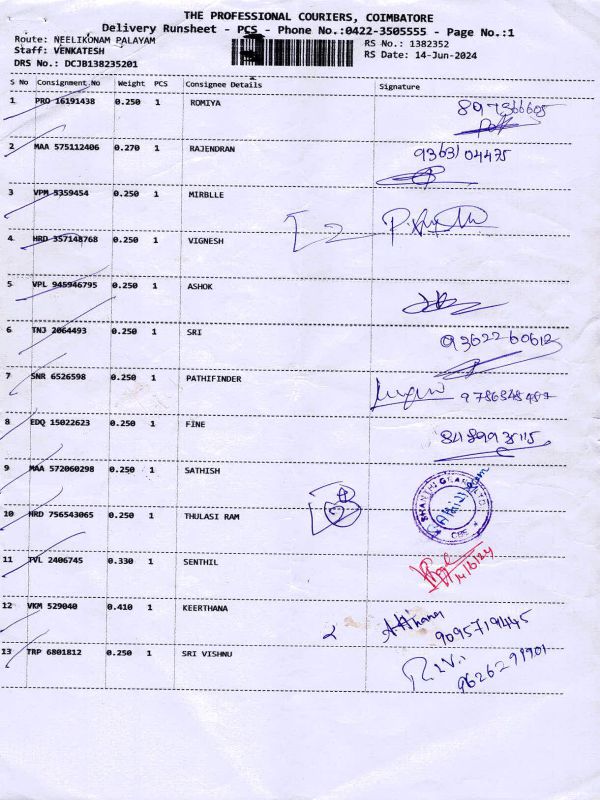 THE PROFESSIONAL COURIERS, COIMBATORE
Delivery Runsheet - PCS - Phone No.:0422-3505555 - Page No.:1
Route: NEELIKONAM PALAYAM
RS No.: 1382352
Staff: VENKATESH
RS Date: 14-Jun-2024
DRS No.: DCJB138235201
S No Consignment No Weight PCS Consignee Details Signature
1 PRO 16191438 0.250 1 ROMIYA
2 MAA 575112406 0.270 1 RAJENDRAN 9363104475
3 VPM 5359454 0.250 1 MIRBLLE
4 HRD 357148768 0.250 1 VIGNESH
5 VPL 945946795 0.250 1 ASHOK
6 TNJ 2064493 0.250 1 SRI 9362260612
7 SNR 6526598 0.250 1 PATHIFINDER
8 EDQ 15022623 0.250 1 FINE
9 MAA 572060298 0.250 1 SATHISH
10 HRD 756543065 0.250 1 THULASI RAM
11 TVL 2406745 0.330 1 SENTHIL
14/6/24
12 VKM 529040 0.410 1 KEERTHANA
9095719445
13 TRP 6801812 0.250 1 SRI VISHNU
9626299901